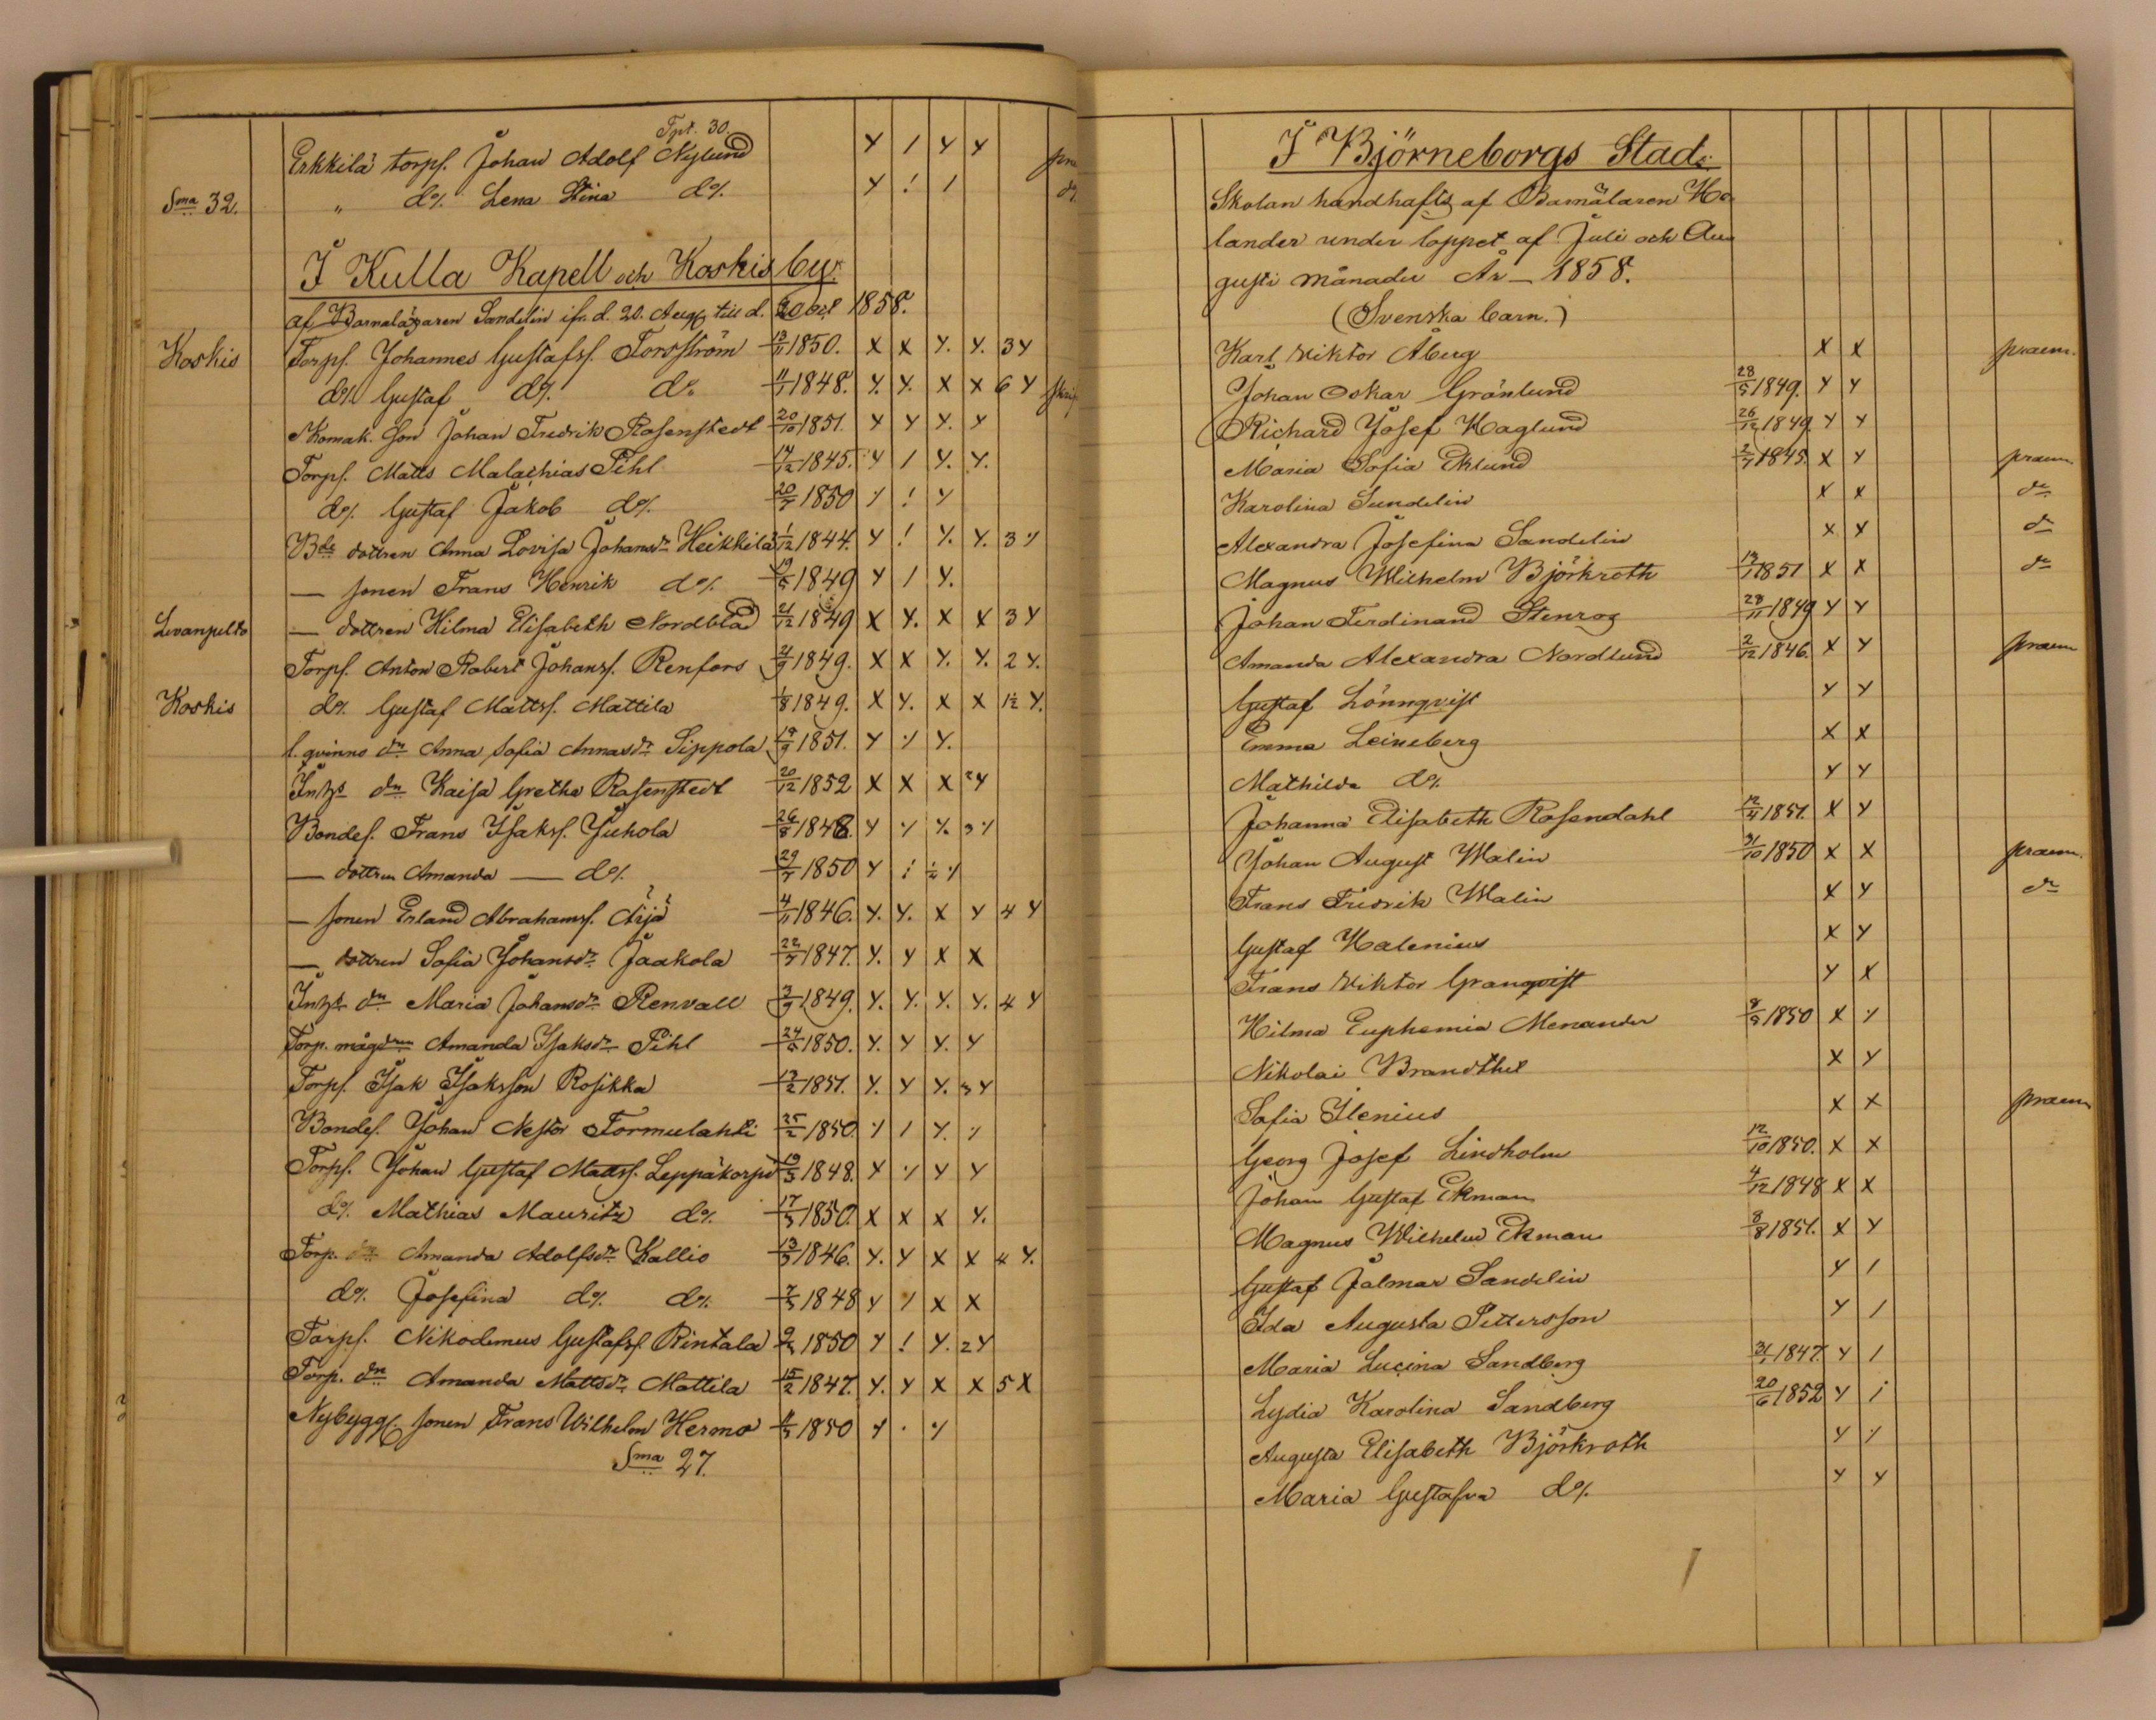 Tpt. 30.
Erkkilä torps. Johan Adolf Nylund Y / Y Y
Sma 32. „ d:o Lena Stina d:o Y ! /
I Kulla Kapell och Koskis by.
af Barnaläraren Sandelin ifr. d. 20. Aug. till d. Oct 1858.
Koskis Torps. Johannes Gustafss. Forsström 13/11 1850. X X Y. Y. 3 Y
d:o Gustaf d:o d:o 11/1 1848. Y. Y. X X 6 Y
Komak. Son Johan Fredrik Rosenstedt 20/10 1851. Y Y Y. Y
Torps. Matts Malachias Pihl 14/12 1845. Y / Y. Y.
d:o Gustaf Jakob d:o 20/7 1850 Y ! Y
Bde dottren Anna Lovisa Johansdr Heikkilä 1/12 1844. Y ! Y. Y. 3 Y
— sonen Frans Henrik d:o 19/5 1849 Y / Y.
Levanpelto — dottren Hilma Elisabeth Nordblad 21/12 1849 X Y. X X 3 Y
Torps. Anton Robert Johanss. Renfors 21/9 1849. X X Y. Y. 2 Y.
Koskis d:o Gustaf Mattss. Mattila 1/8 1849. X Y. X X 1½ Y.
l. qvinno dn Anna Sofia Annasdr Sippola 19/9 1851. Y Y Y.
Inhs dn Kaisa Gretha Rosenstedt 20/12 1852 X X X 2 Y
Bondes. Frans Isakss. Juhola 26/8 1848 Y Y Y. 3 Y
— dottren Amanda — d:o 29/7 1850 Y
— sonen Erland Abrahamss. Äijä 4/11 1846. Y. Y. X Y 4 Y
— dottren Sofia Johansdr Jaakola 22/5 1847. Y. Y X X
Inhs dn Maria Johansdr Renvall 3/9 1849. Y. Y. Y. Y. 4 Y
Torp. mågdren Amanda Isaksdr Pihl 24/5 1850. Y. Y Y. Y
Torps. Isak Isaksson Rosikka 13/2 1851. Y. Y Y. 3 Y
Bondes. Johan Nestor Tormulahti 25/2 1850. Y / Y. Y
Torps. Johan Gustaf Mattss. Leppäkorpi 19/3 1848. Y Y Y Y
d:o Mathias Mauritz d:o 17/3 1850. X X X Y.
Torp. dn Amanda Adolfsdr Kallio 13/5 1846. Y. Y X X 4 Y.
d:o Josefina d:o d:o 7/3 1848 Y / X X
Torps. Nikodemus Gustafss. Rintala 1850 Y ! Y. 2 Y
Torp. dn Amanda Mattsdr Mattila 15/2 1847. Y. Y X X 5 X
Nybygg. sonen Frans Wilhelm Hermo 1850 Y . Y
Sma 27.
I Björneborgs Stad.
Skolan handhafts af Barnaläraren He-
lander under loppet af Juli och Au-
gusti månader År — 1858.
(Svenska barn.)
Karl Viktor Åberg X X praem.
Johan Oskar Grönlund 28/5 1849. Y Y
Richard Josef Haglund 26/12 1849. Y Y
Maria Sofia Eklund 2/7 1845. X Y praem.
Karolina Sundelin X X do
Alexandra Josefina Sandelin X Y do
Magnus Wilhelm Björkroth 13/1 1851 X X do
Johan Ferdinand Stenroz 28/11 1849 Y Y
Amanda Alexandra Nordlund 2/12 1846. X Y praem
Gustaf Lönnqvist Y Y
Emma Leineberg X X
Mathilda d:o Y Y
Johanna Elisabeth Rosendahl 12/4 1851. X Y
Johan August Malin 31/10 1850 X X praem.
Frans Fredrik Malin X Y do
Gustaf Halenius X Y
Frans Viktor Granqvist Y X
Hilma Euphemia Menander 8/9 1850 X Y
Nikolai Brandthel X Y
Sofia Ilenius X X praem
Georg Josef Lindholm 12/10 1850. X X
Johan Gustaf Ekman 4/12 1848 X X
Magnus Wilhelm Ekman 8/8 1851. X Y
Gustaf Jalmar Sandelin Y /
Ida Augusta Pettersson Y /
Maria Lucina Sandberg 31/1 1847. Y /
Lydia Karolina Sandberg 20/6 1852 Y /
Augusta Elisabeth Björkroth Y Y
Maria Gustafva d:o Y Y